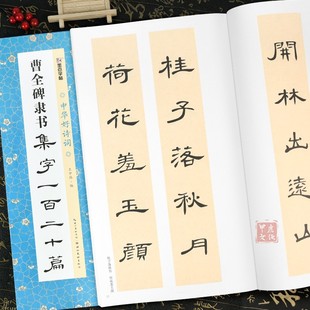 墨点字帖
中华好诗词
曹全碑隶书集字一百二十篇
開林出遠山
桂子落秋月
荷花羞玉顏